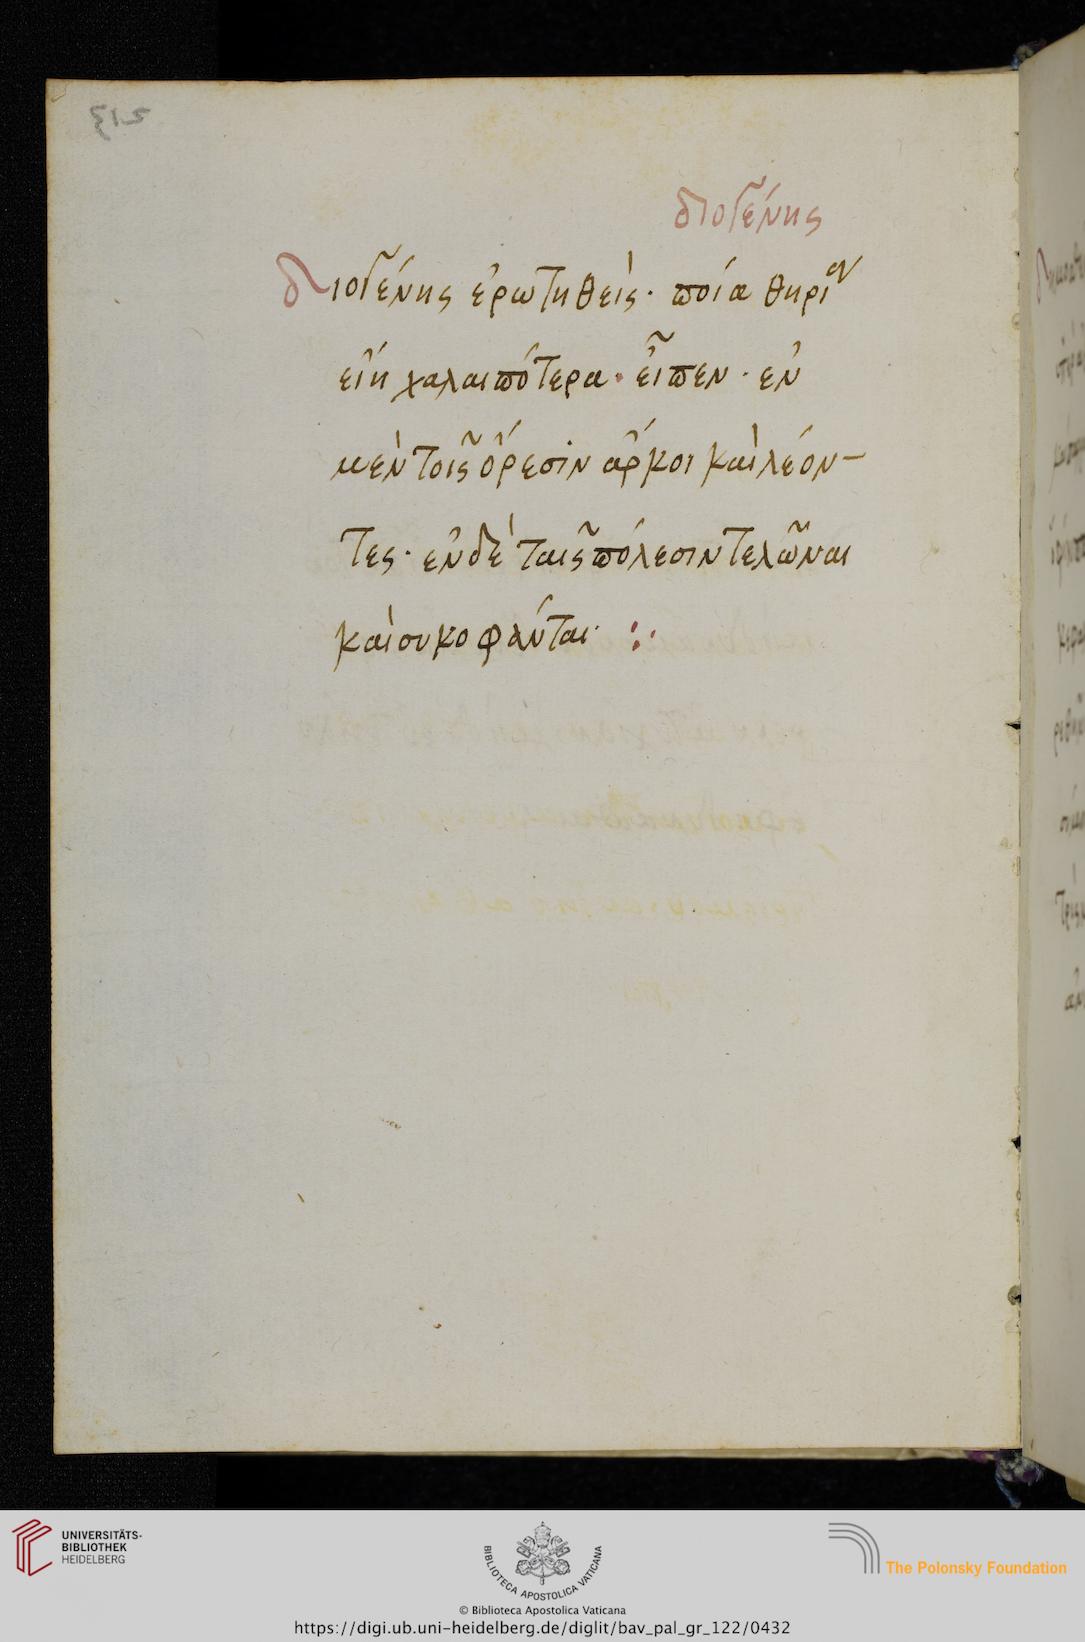 διογένης
διογένης ἐρωτηθεὶς· ποία θηρίων
εἴη χαλαιπότερα· εἶπεν· ἐν
μὲν τοῖς ὄρεσιν ἄρκοι καὶ λέον-
τες· ἐν δὲ ταῖς πόλεσιν τελῶναι
καὶ συκοφάνται· :·
UNIVERSITÄTS-
BIBLIOTHEK
HEIDELBERG
BIBLIOTECA APOSTOLICA VATICANA
The Polonsky Foundation
© Biblioteca Apostolica Vaticana
https://digi.ub.uni-heidelberg.de/diglit/bav_pal_gr_122/0432